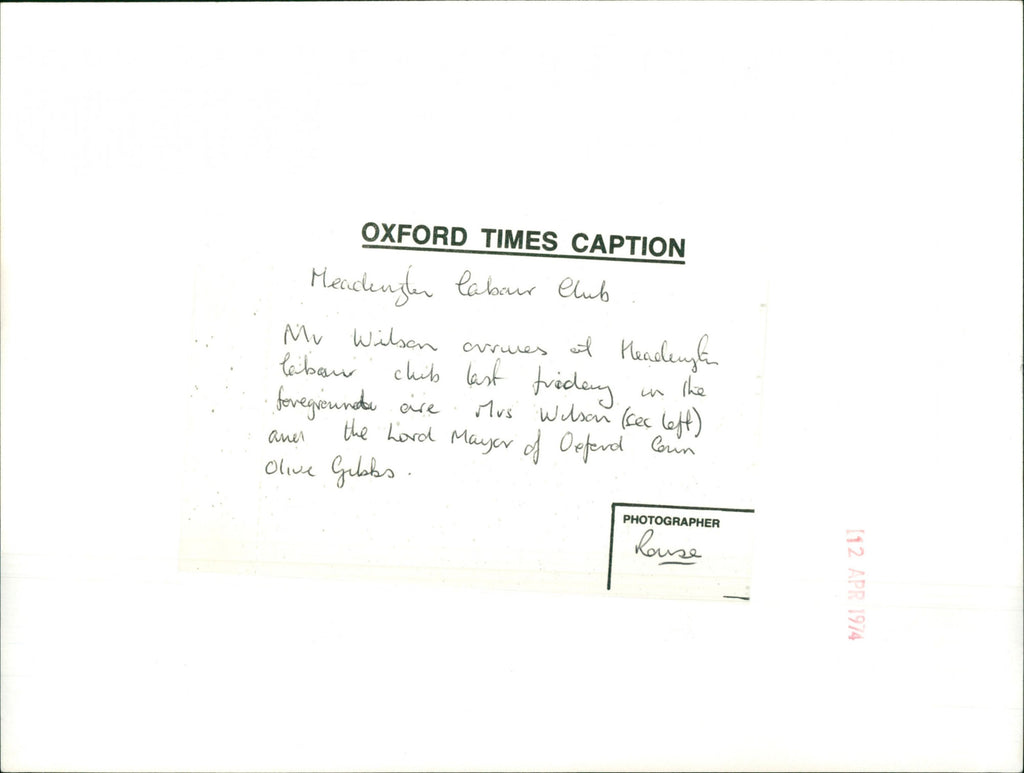 OXFORD TIMES CAPTION
Headington Labour Club
Mr Wilson arrives at Headington
labour club last friday in the
foreground are Mrs Wilson (sec left)
and the Lord Mayor of Oxford Coun
Olive Gibbs.
PHOTOGRAPHER
Rouse
12 APR 1974